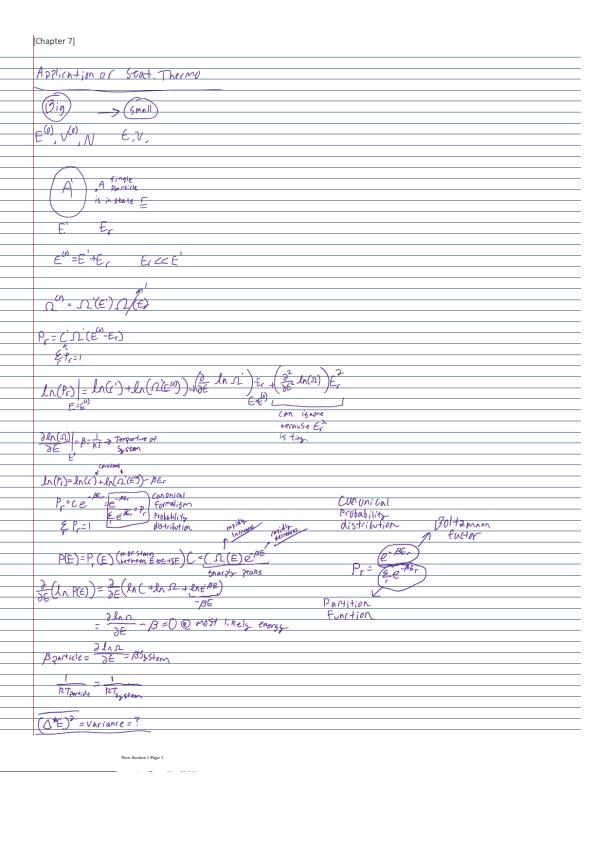 [Chapter 7]
Application of Stat. Thermo
Big → small
E⁽⁰⁾, V⁽⁰⁾, N E, V,
A' . A single particle is in state E
E' Eᵣ
E⁽⁰⁾ = E' + Eᵣ Eᵣ << E'
Ω⁽⁰⁾ = Ω'(E') Ω(E) 1
Pᵣ = C'Ω'(E⁽⁰⁾-Eᵣ)
Σᵣ Pᵣ = 1
ln(Pᵣ)| = ln(C') + ln(Ω'(E⁽⁰⁾)) + (∂/∂E ln Ω')·Eᵣ + (∂²/∂E² ln(Ω))Eᵣ²
E=E⁽⁰⁾ E=E⁽⁰⁾
can ignore
because Eᵣ²
is tiny.
∂ln(Ω)/∂E | = β = 1/kT → Temperature of System
E'
constant
ln(Pᵣ) = ln(C) + ln(Ω'(E)) - βEᵣ
Pᵣ = C e^-βEᵣ = e^-βEᵣ / Σᵣ e^-βEᵣ = Pᵣ
Canonical
Formalism
Probability
distribution.
Σᵣ Pᵣ = 1
Canonical
Probability
distribution
Boltzmann
factor
Pᵣ = e^-βEᵣ / Σ e^-βEᵣ
Partition
Function
rapidly increase rapidly decreases
P(E) = Pᵣ(E) (# of states between E & E+δE) C = C Ω(E) e^-βE
Sharply peaks
∂/∂E (ln P(E)) = ∂/∂E (ln C + ln Ω + ln e^-βE)
-βE
= ∂lnΩ/∂E - β = 0 @ most likely energy
βparticle = ∂lnΩ/∂E = βsystem
1/kTparticle = 1/kTsystem
(Δ*E)² = variance = ?
New Section 1 Page 1